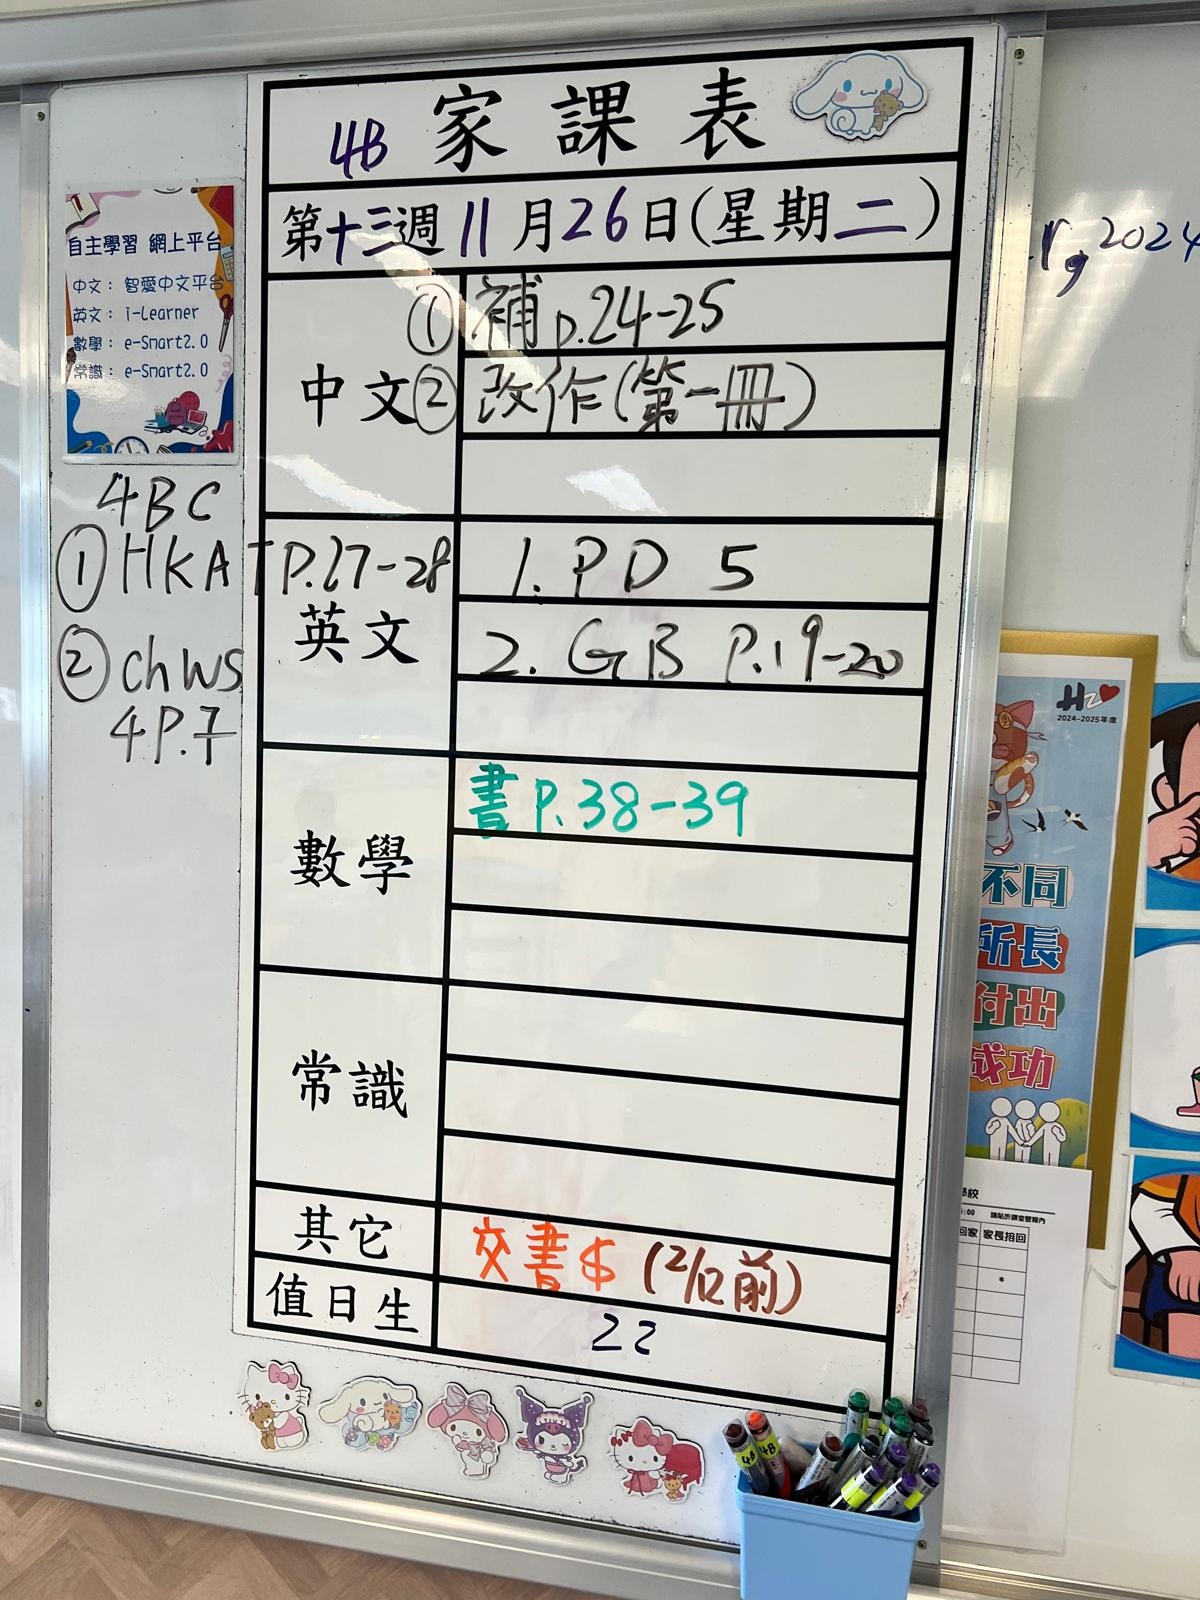 4B 家課表
第十三週 11月26日(星期二)
中文
① 補 p.24-25
② 改作(第一冊)
英文
1. PD 5
2. GB P.19-20
數學
書 P.38-39
常識
其它
交書$ (2/12前)
值日生
22
自主學習 網上平台
中文: 智愛中文平台
英文: i-Learner
數學: e-Smart2.0
常識: e-Smart2.0
4BC
① HKAT P.27-28
② Ch WS
4P.7
r, 2024
2024-2025年度
不同
所長
付出
成功
學校
:00 請貼於課室壁報內
回家 家長捐回
*
4B
4B